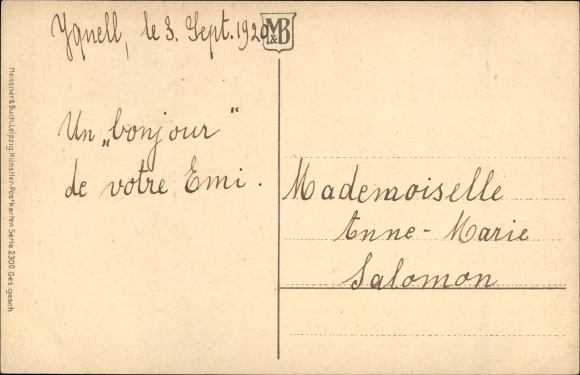 Yquell, le 3. Sept. 1920
M&B
Un „bonjour"
de votre Emi.
Mademoiselle
Anne-Marie
Salomon
Meissner & Buch, Leipzig, Künstler-Postkarten Serie 2300 Ges. gesch.